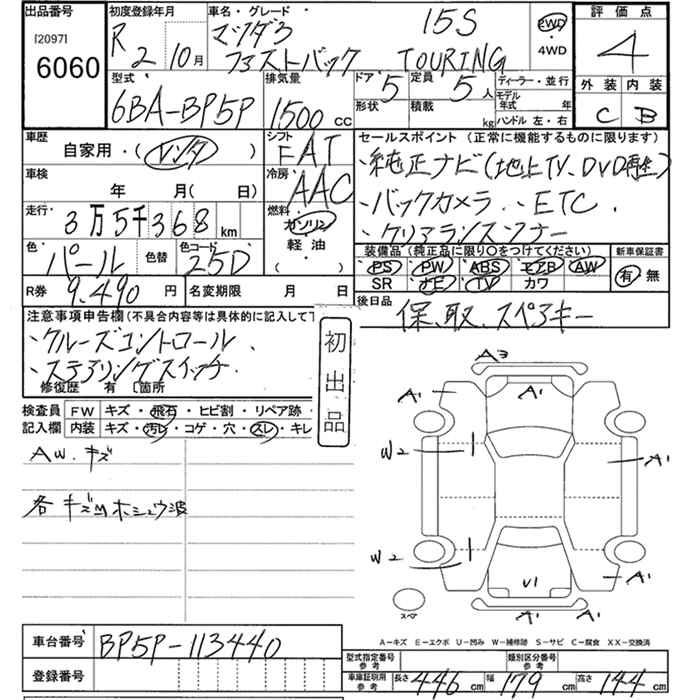 出品番号 初度登録年月 車名・グレード 評価点
[2097] R 2 10月 マツダ3 15S 2WD ・4WD 4
6060 ファストバック TOURING
型式 排気量 ドア 定員 ディーラー・並行 外装 内装
6BA-BP5P 1500 CC 5 5人 モデル年式 年 C B
形状 積載 kg ハンドル 左・右
車歴 シフト セールスポイント (正常に機能するものに限ります)
自家用・(レンタ) FAT ・純正ナビ(地上TV、DVD再生)
車検 冷房 ・バックカメラ、・ETC
年 月(日) AAC ・クリアランスソナー
走行 燃料
3万5千368km ガソリン
色 色替 色コード 軽油 装備品(純正品に限り○をつけてください) 新車保証書
パール 25D ( ) PS PW ABS エアB AW 有 無
SR ナビ TV カワ
R券 9,490円 名変期限 月 日 後日品
保、取、スペアキー
注意事項申告欄(不具合内容等は具体的に記入して下
・クルーズコントロール
・ステアリングスイッチ
修復歴 有 [箇所
初出品
検査員 FW キズ・飛石・ヒビ割・リペア跡・
記入欄 内装 キズ・汚レ・コゲ・穴・スレ・キレ
AW.キズ
各キズ
A3
A1 A1
W2 A1
W2 A1
U1
A1 A1
スペア
A-キズ E-エクボ U-凹み W-補修跡 S-サビ C-腐食 XX-交換済
車台番号 BP5P-113440
登録番号
型式指定番号 参考 類別区分番号 参考
車庫証明用 参考 長さ 446cm 幅 179cm 高さ 144cm